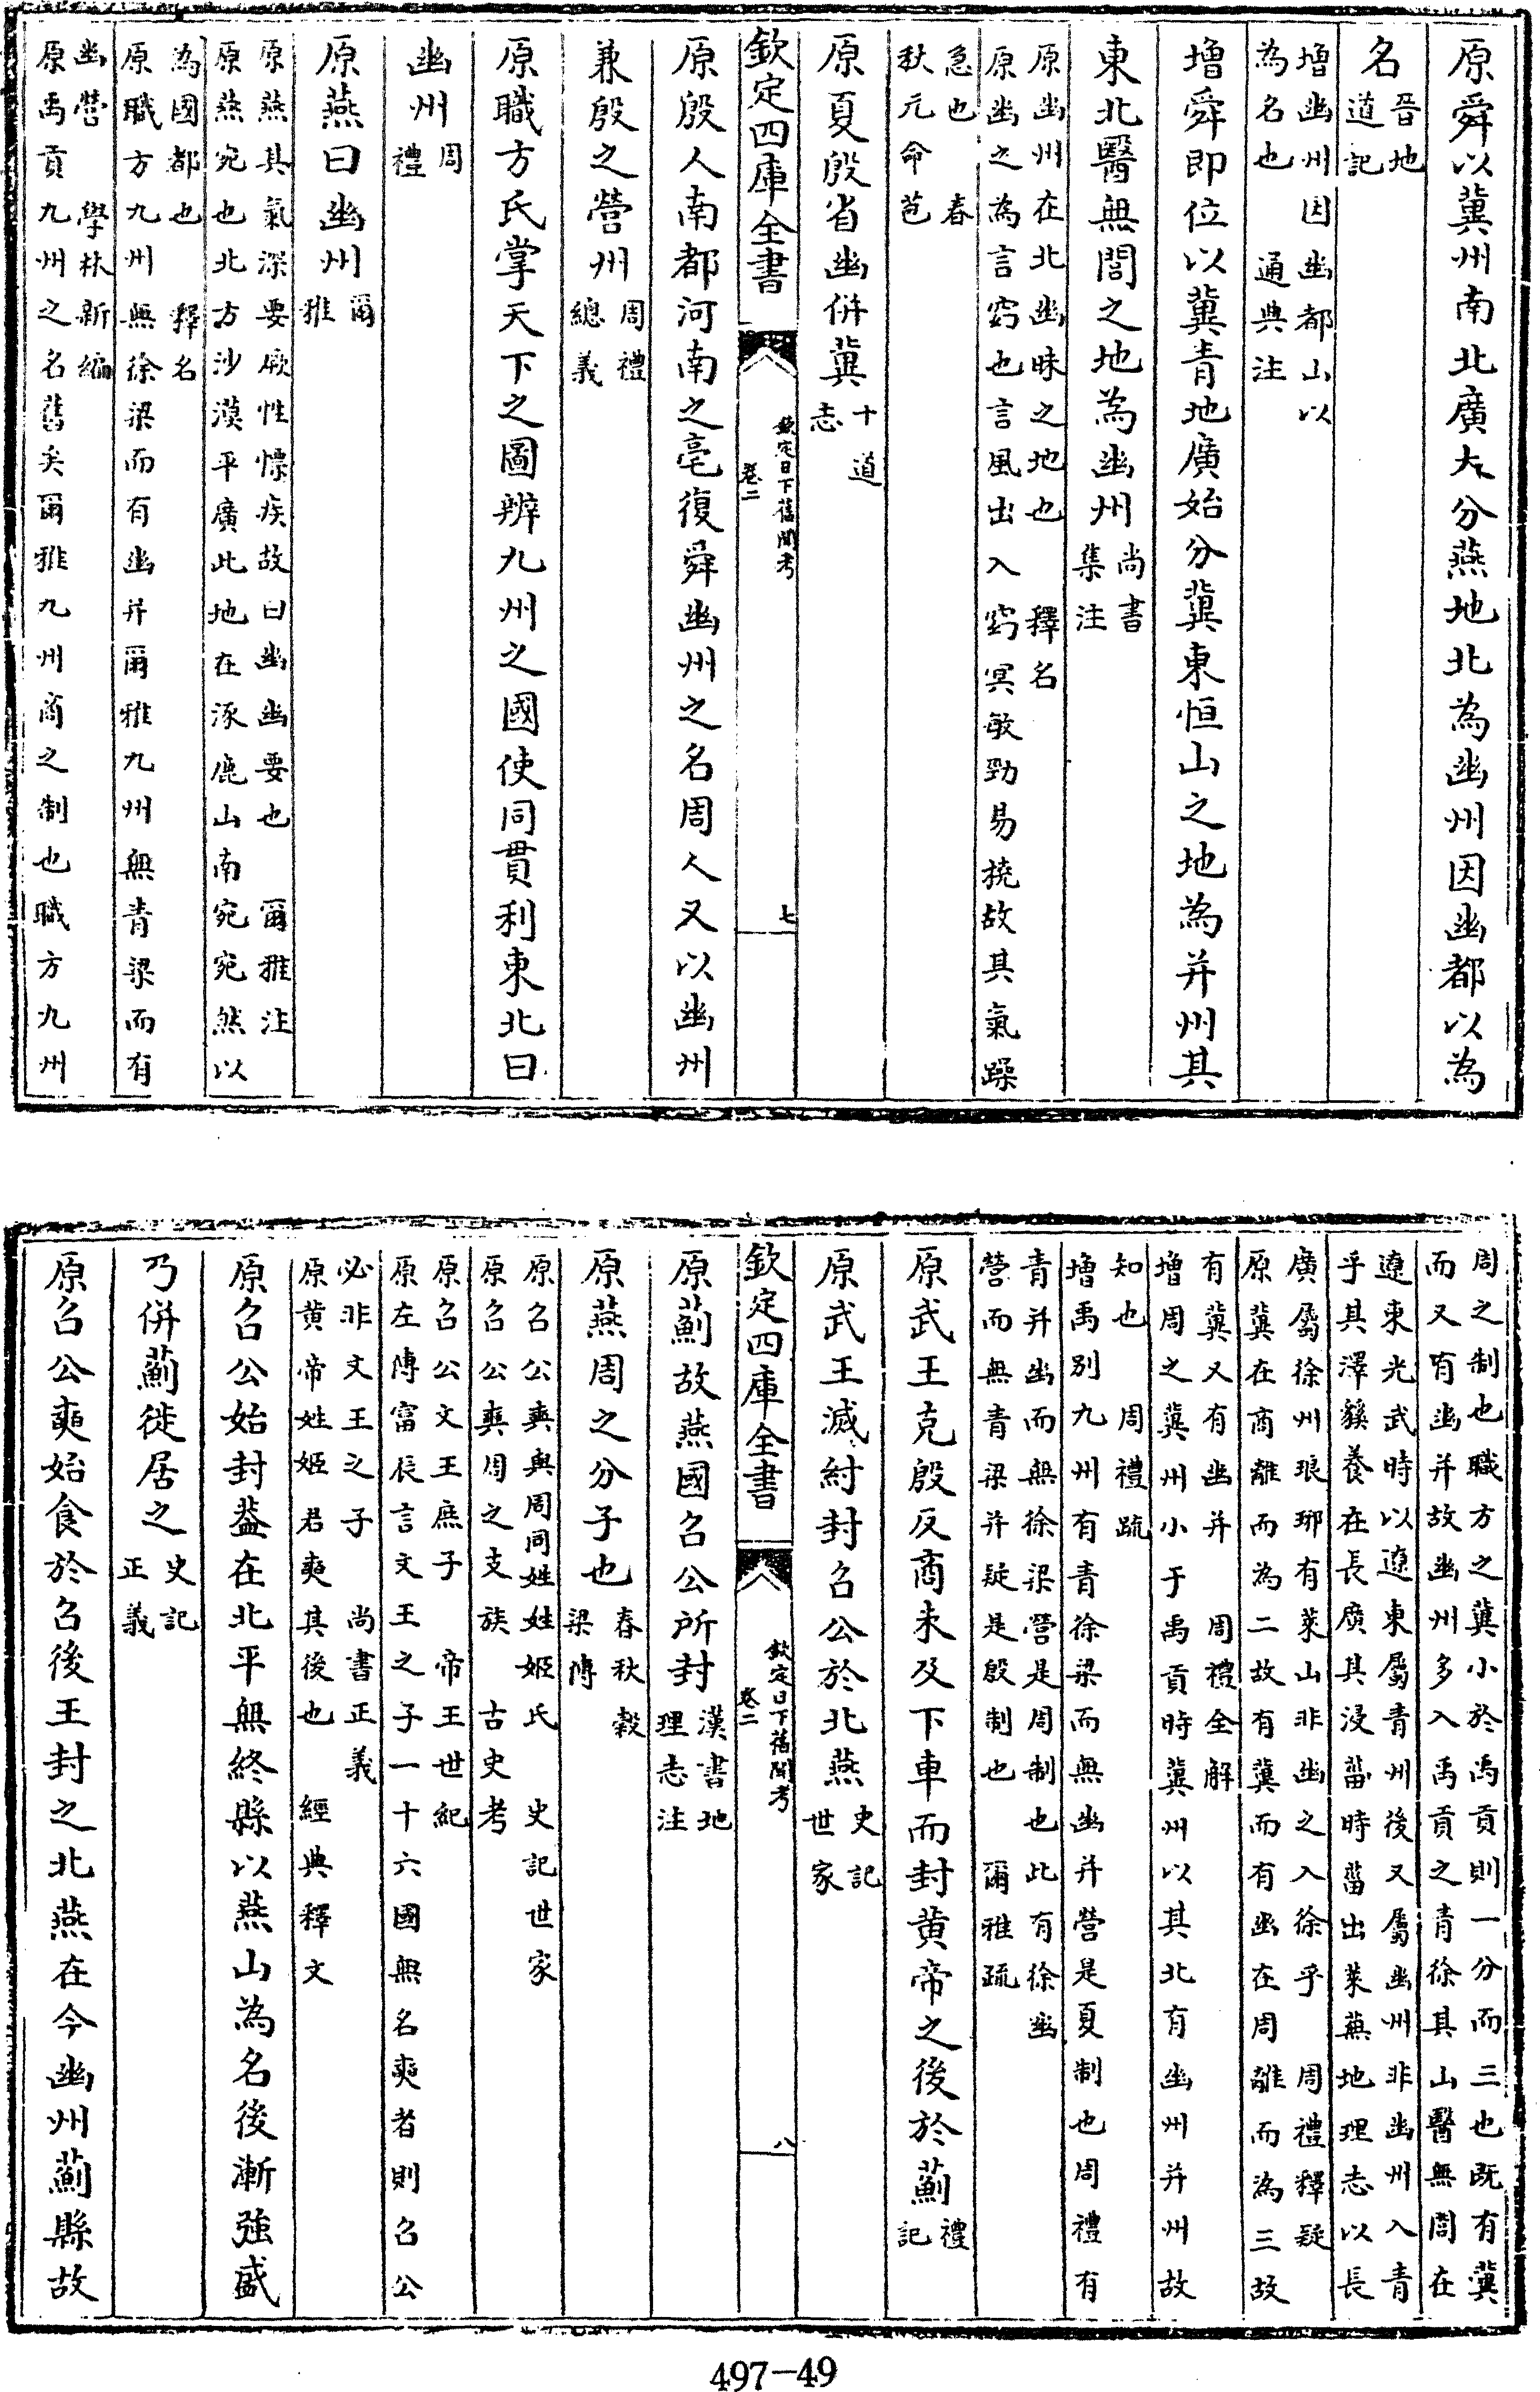 原舜以冀州南北廣大分燕地北為幽州因幽都以為
名晉地道記
增幽州因幽都山以
為名也 通典注
增舜即位以冀青地廣始分冀東恒山之地為并州其
東北醫無閭之地為幽州尚書集注
原幽州在北幽昧之地也 釋名
原幽之為言窈也言風出入窈冥敏勁易撓故其氣躁
急也 春
秋元命苞
原夏殷省幽併冀十道志
欽定四庫全書 欽定日下舊聞考 卷二 七
原殷人南都河南之亳復舜幽州之名周人又以幽州
兼殷之營州周禮總義
原職方氏掌天下之圖辨九州之國使同貫利東北曰
幽州周禮
原燕曰幽州爾雅
原燕其氣深要厥性慓疾故曰幽幽要也 爾雅注
原燕宛也北方沙漠平廣此地在涿鹿山南宛宛然以
為國都也 釋名
原職方九州無徐梁而有幽并爾雅九州無青梁而有
幽營 學林新編
原禹貢九州之名舊矣爾雅九州商之制也職方九州
周之制也職方之冀小於禹貢則一分而三也既有冀
而又有幽并故幽州多入禹貢之青徐其山醫無閭在
遼東光武時以遼東屬青州後又屬幽州非幽州入青
乎其澤貕養在長廣其浸菑時菑出萊蕪地理志以長
廣屬徐州琅琊有萊山非幽之入徐乎 周禮釋疑
原冀在商離而為二故有冀而有幽在周離而為三故
有冀又有幽并 周禮全解
增周之冀州小于禹貢時冀州以其北有幽州并州故
知也 周禮疏
增禹別九州有青徐梁而無幽并營是夏制也周禮有
青并幽而無徐梁營是周制也此有徐幽
營而無青梁并疑是殷制也 爾雅疏
原武王克殷反商未及下車而封黃帝之後於薊禮記
原武王滅紂封召公於北燕史記世家
欽定四庫全書 欽定日下舊聞考 卷二 八
原薊故燕國召公所封漢書地理志注
原燕周之分子也春秋穀梁傳
原召公奭與周同姓姓姬氏 史記世家
原召公奭周之支族 古史考
原召公文王庶子 帝王世紀
原左傳富辰言文王之子一十六國無名奭者則召公
必非文王之子 尚書正義
原黃帝姓姬君奭其後也 經典釋文
原召公始封蓋在北平無終縣以燕山為名後漸強盛
乃併薊徙居之史記正義
原召公奭始食於召後王封之北燕在今幽州薊縣故
497-49